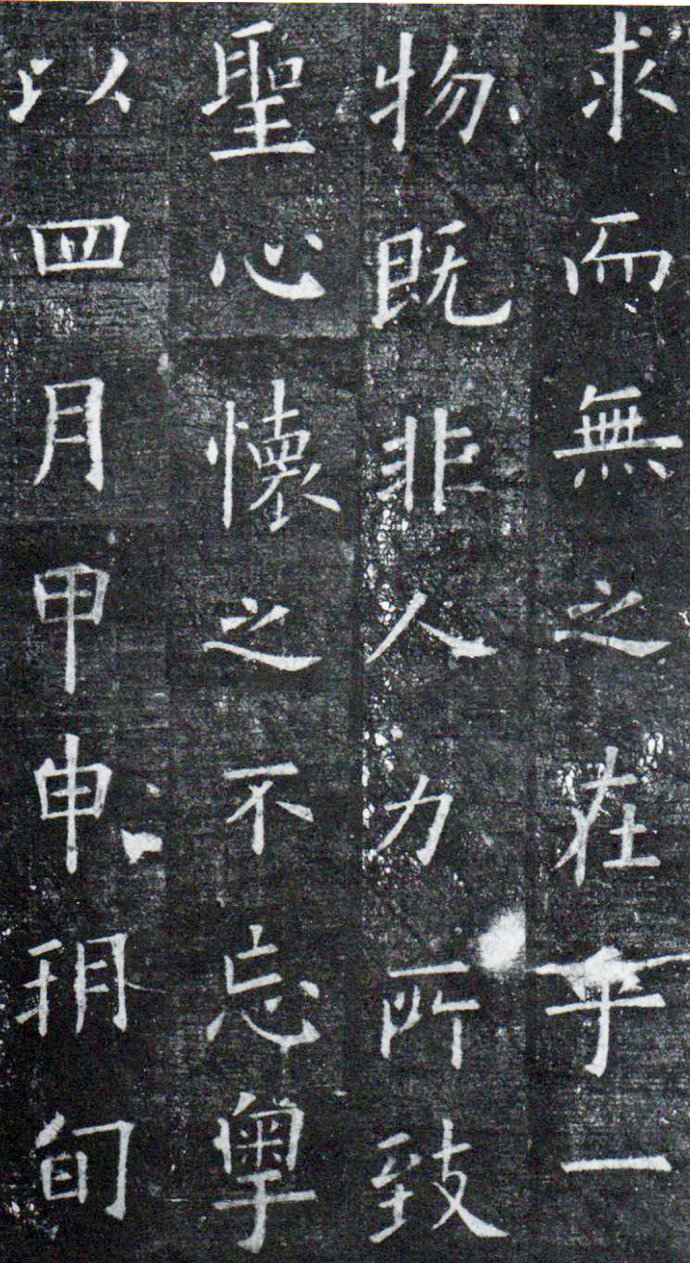 求而無之在乎一
物既非人力所致
聖心懷之不忘粤
以四月甲申朔旬